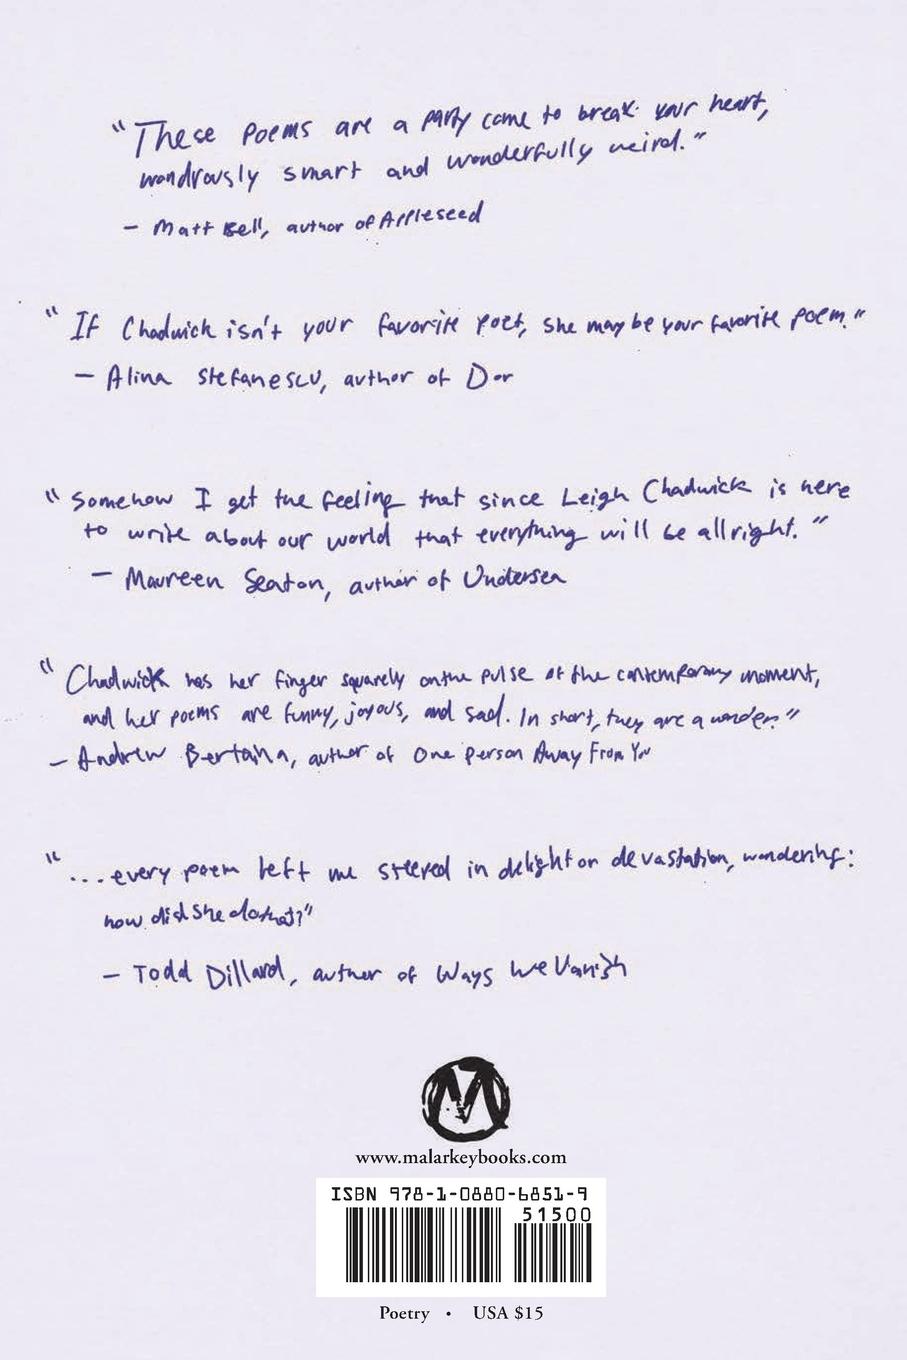 "These poems are a party come to break your heart,
wondrously smart and wonderfully weird."
- Matt Bell, author of Appleseed
"If Chadwick isn't your favorite poet, she may be your favorite poem."
- Alina Stefanescu, author of Dor
"Somehow I get the feeling that since Leigh Chadwick is here
to write about our world that everything will be allright."
- Maureen Seaton, author of Undersea
"Chadwick has her finger squarely on the pulse of the contemporary moment,
and her poems are funny, joyous, and sad. In short, they are a wonder."
- Andrew Bertaina, author of One Person Away From You
"...every poem left me steered in delight or devastation, wondering:
how did she do that?"
- Todd Dillard, author of Ways We Vanish
M
www.malarkeybooks.com
ISBN 978-1-0880-6851-9
51500
Poetry • USA $15